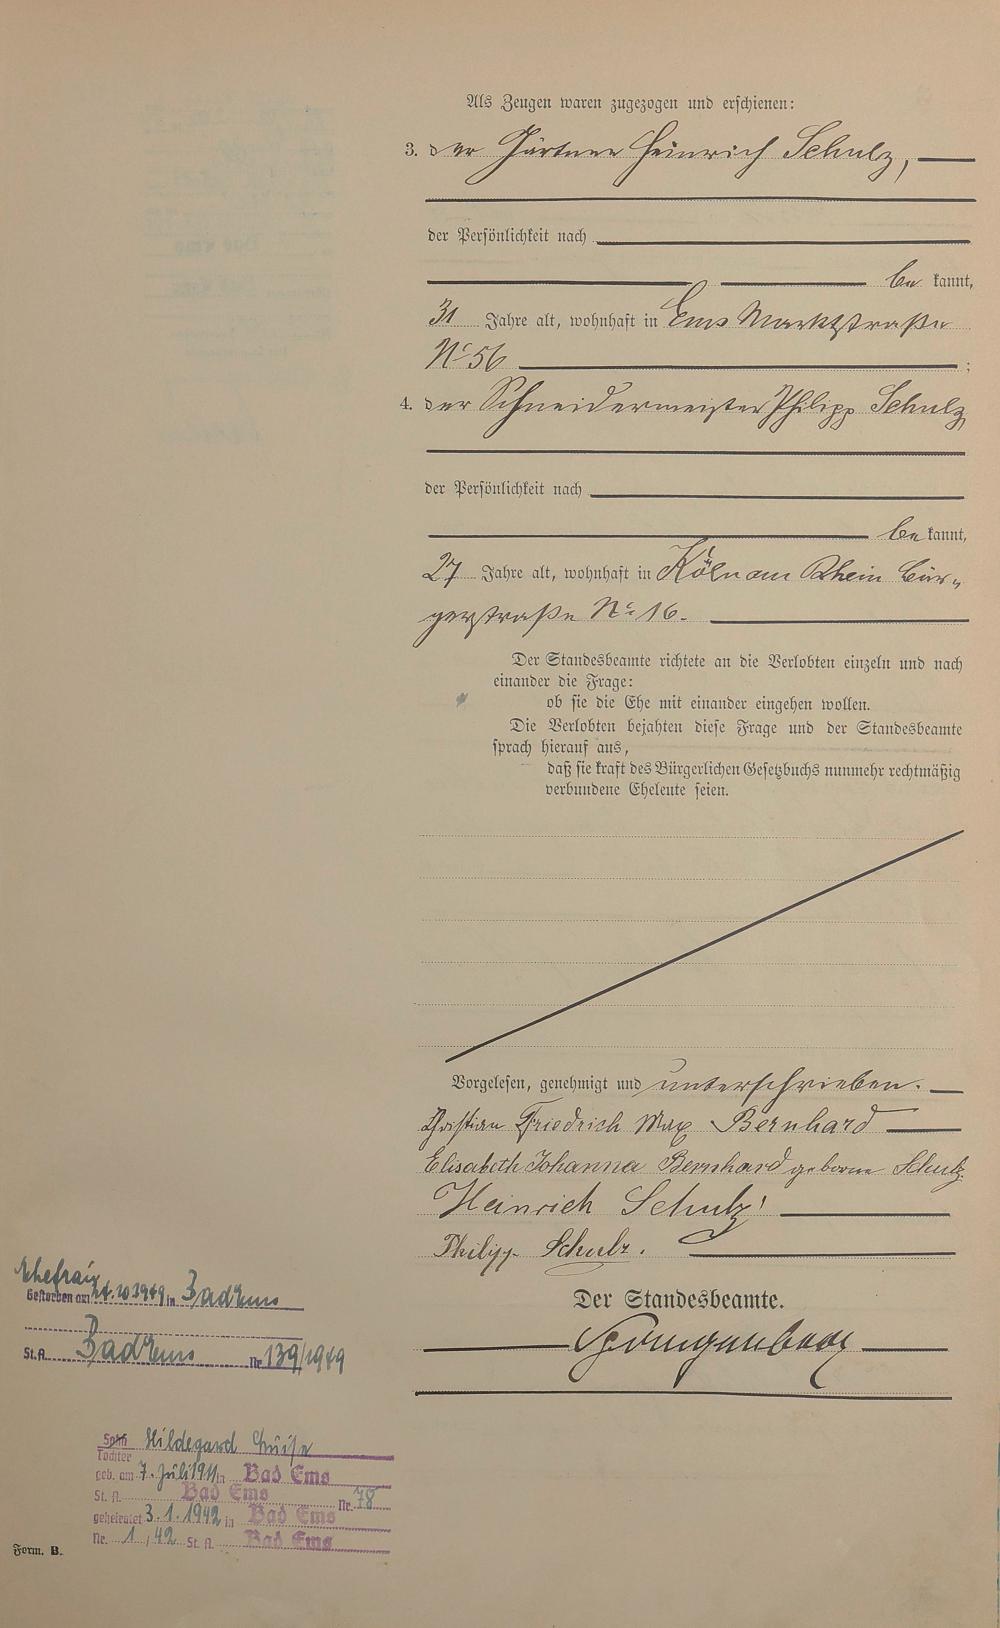 Als Zeugen waren zugezogen und erschienen:
3. der Gärtner Heinrich Schulz,
der Persönlichkeit nach
be kannt,
31 Jahre alt, wohnhaft in Ems Marktstraße
No 56 ;
4. der Schneidermeister Philipp Schulz,
der Persönlichkeit nach
be kannt,
27 Jahre alt, wohnhaft in Köln am Rhein Bür-
gerstraße No 16.
Der Standesbeamte richtete an die Verlobten einzeln und nach
einander die Frage:
ob sie die Ehe mit einander eingehen wollen.
Die Verlobten bejahten diese Frage und der Standesbeamte
sprach hierauf aus,
daß sie kraft des Bürgerlichen Gesetzbuchs nunmehr rechtmäßig
verbundene Eheleute seien.
Vorgelesen, genehmigt und unterschrieben.
Christian Friedrich Max Bernhard
Elisabeth Johanna Bernhard geborne Schulz.
Heinrich Schulz
Philipp Schulz.
Der Standesbeamte.
Ehefrau
Gestorben am 24.10 1949 in Bad Ems
St.A. Bad Ems Nr. 139/1949
Sohn Hildegard Luise
Tochter
geb. am 7. Juli 1911 in Bad Ems
St. A. Bad Ems Nr. 78
geheiratet 3.1.1942 in Bad Ems
Nr. 1 / 42 St. A. Bad Ems
Form. B.